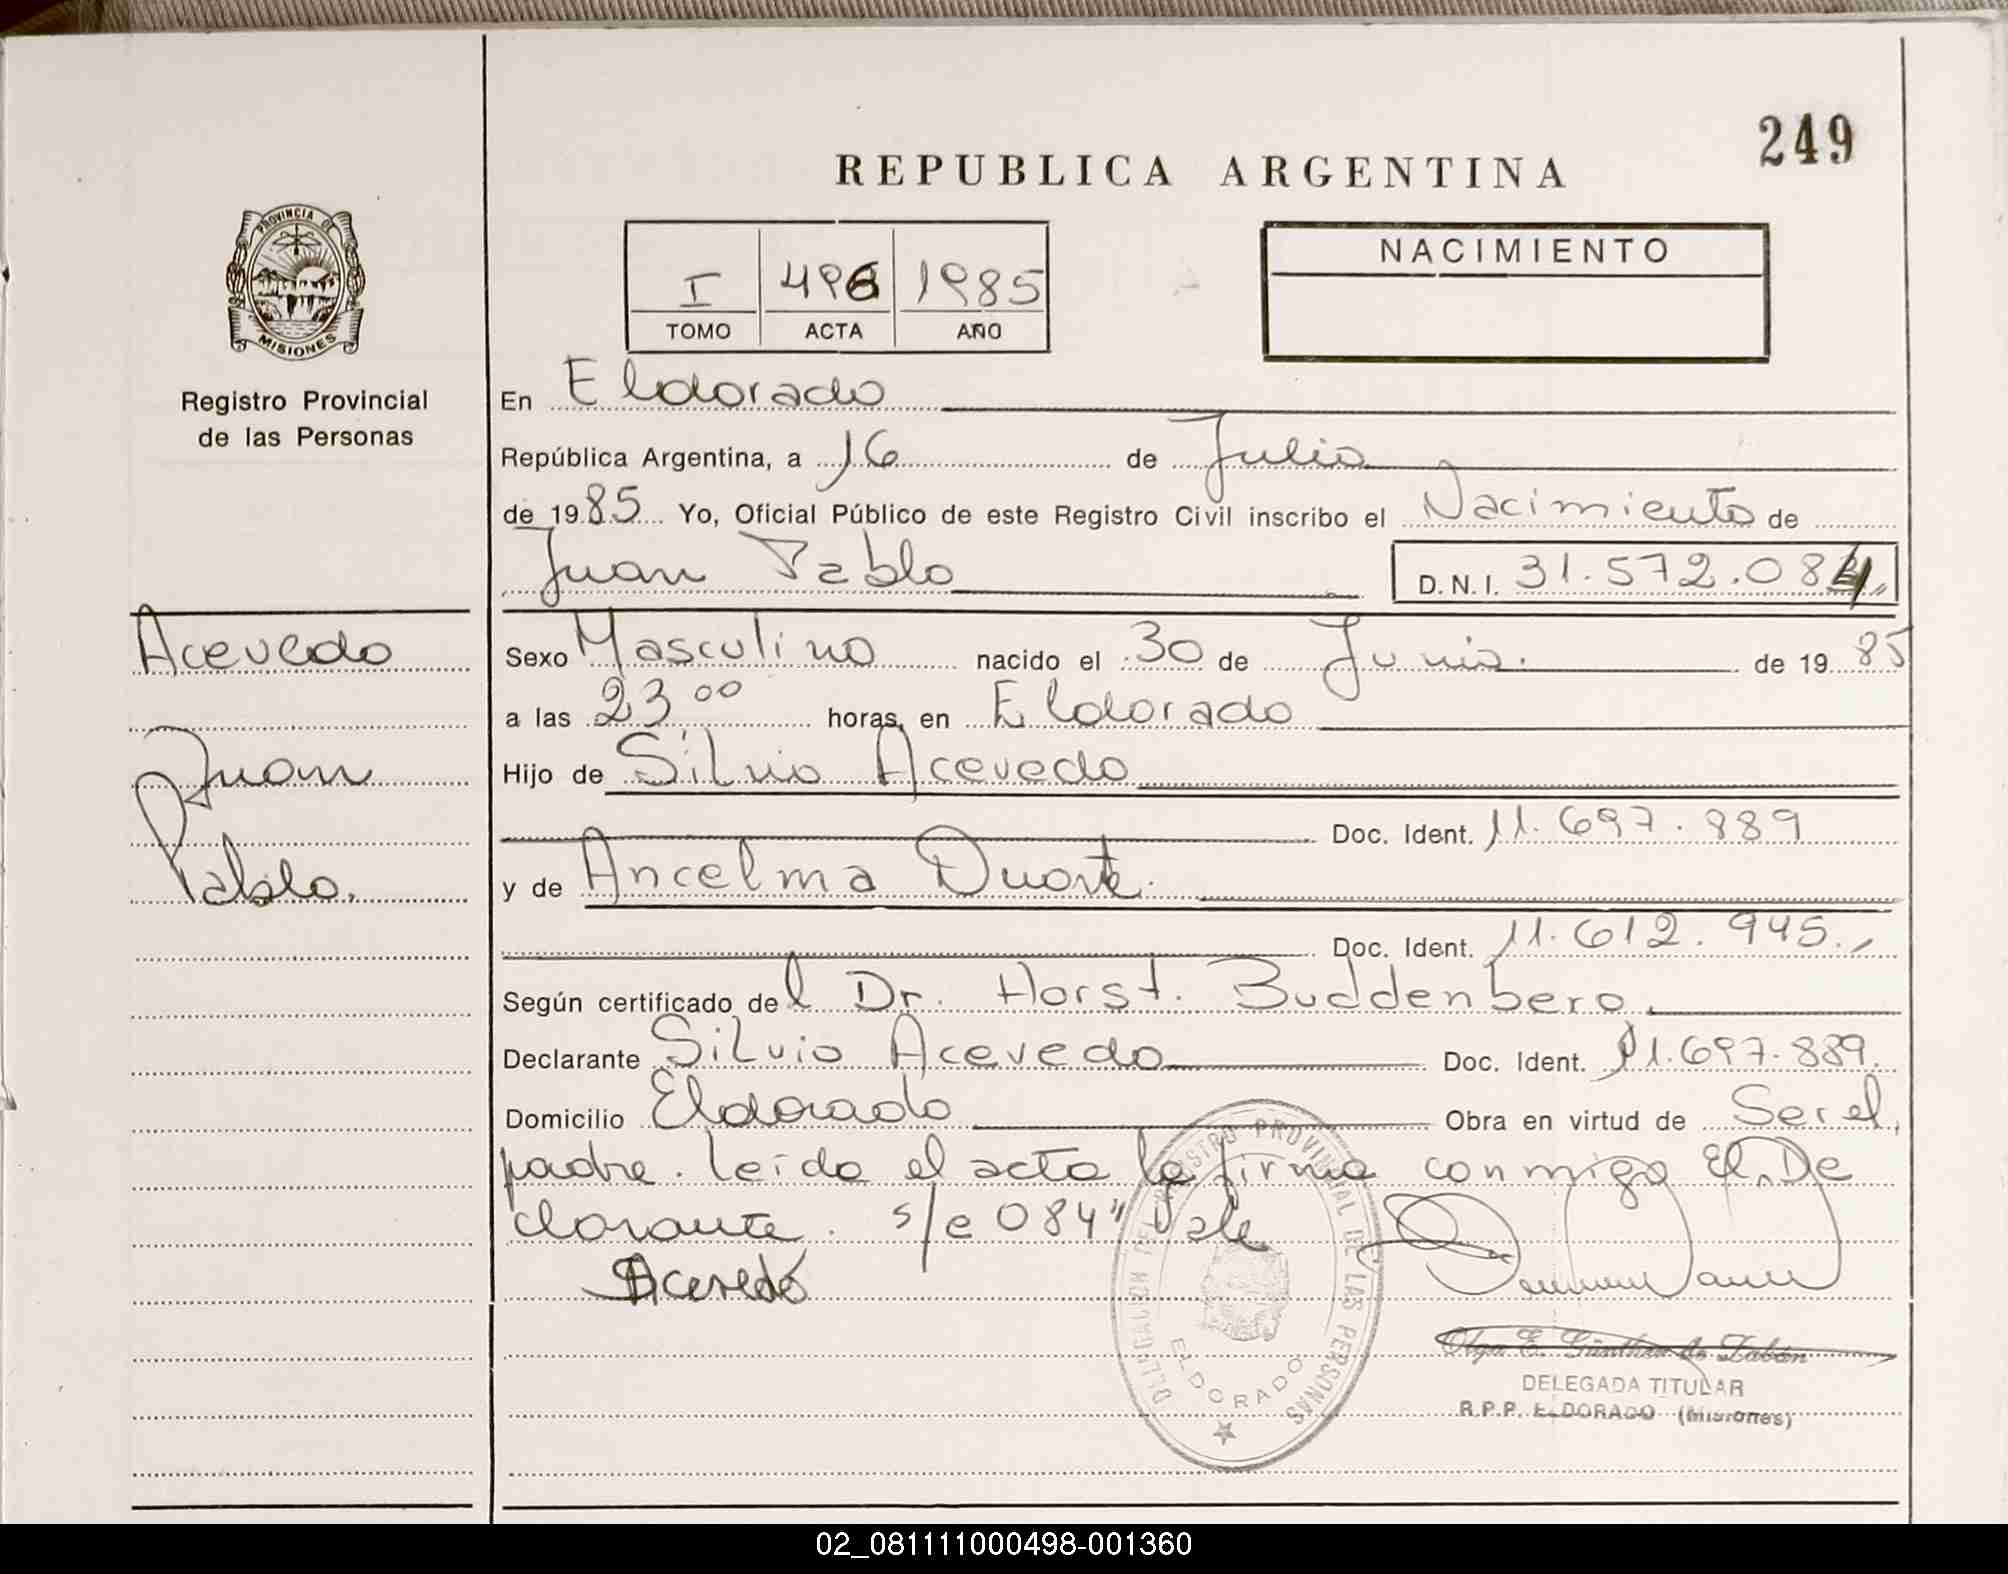 249
REPUBLICA ARGENTINA
PROVINCIA DE
MISIONES
Registro Provincial
de las Personas
I 496 1985
TOMO ACTA AÑO
NACIMIENTO
En Eldorado
República Argentina, a 16 de Julio
de 1985 Yo, Oficial Público de este Registro Civil inscribo el Nacimiento de
Juan Pablo D.N.I. 31.572.084
Acevedo
Juan
Pablo.
Sexo Masculino nacido el 30 de Junio. de 1985
a las 23 00 horas, en Eldorado
Hijo de Silvio Acevedo
Doc. Ident. 11.697.889
y de Ancelma Duarte.
Doc. Ident. 11.612.945.,
Según certificado del Dr. Horst. Buddenberg
Declarante Silvio Acevedo Doc. Ident. 11.697.889.
Domicilio Eldorado Obra en virtud de Ser el
padre. leída el acta la firma conmigo El De
clarante. s/e 084" Vale
Acevedo
DELEGACION DEL REGISTRO PROVINCIAL DE LAS PERSONAS
ELDORADO
Olga E. Günther de Zabán
DELEGADA TITULAR
R.P.P. ELDORADO (Misiones)
02_081111000498-001360